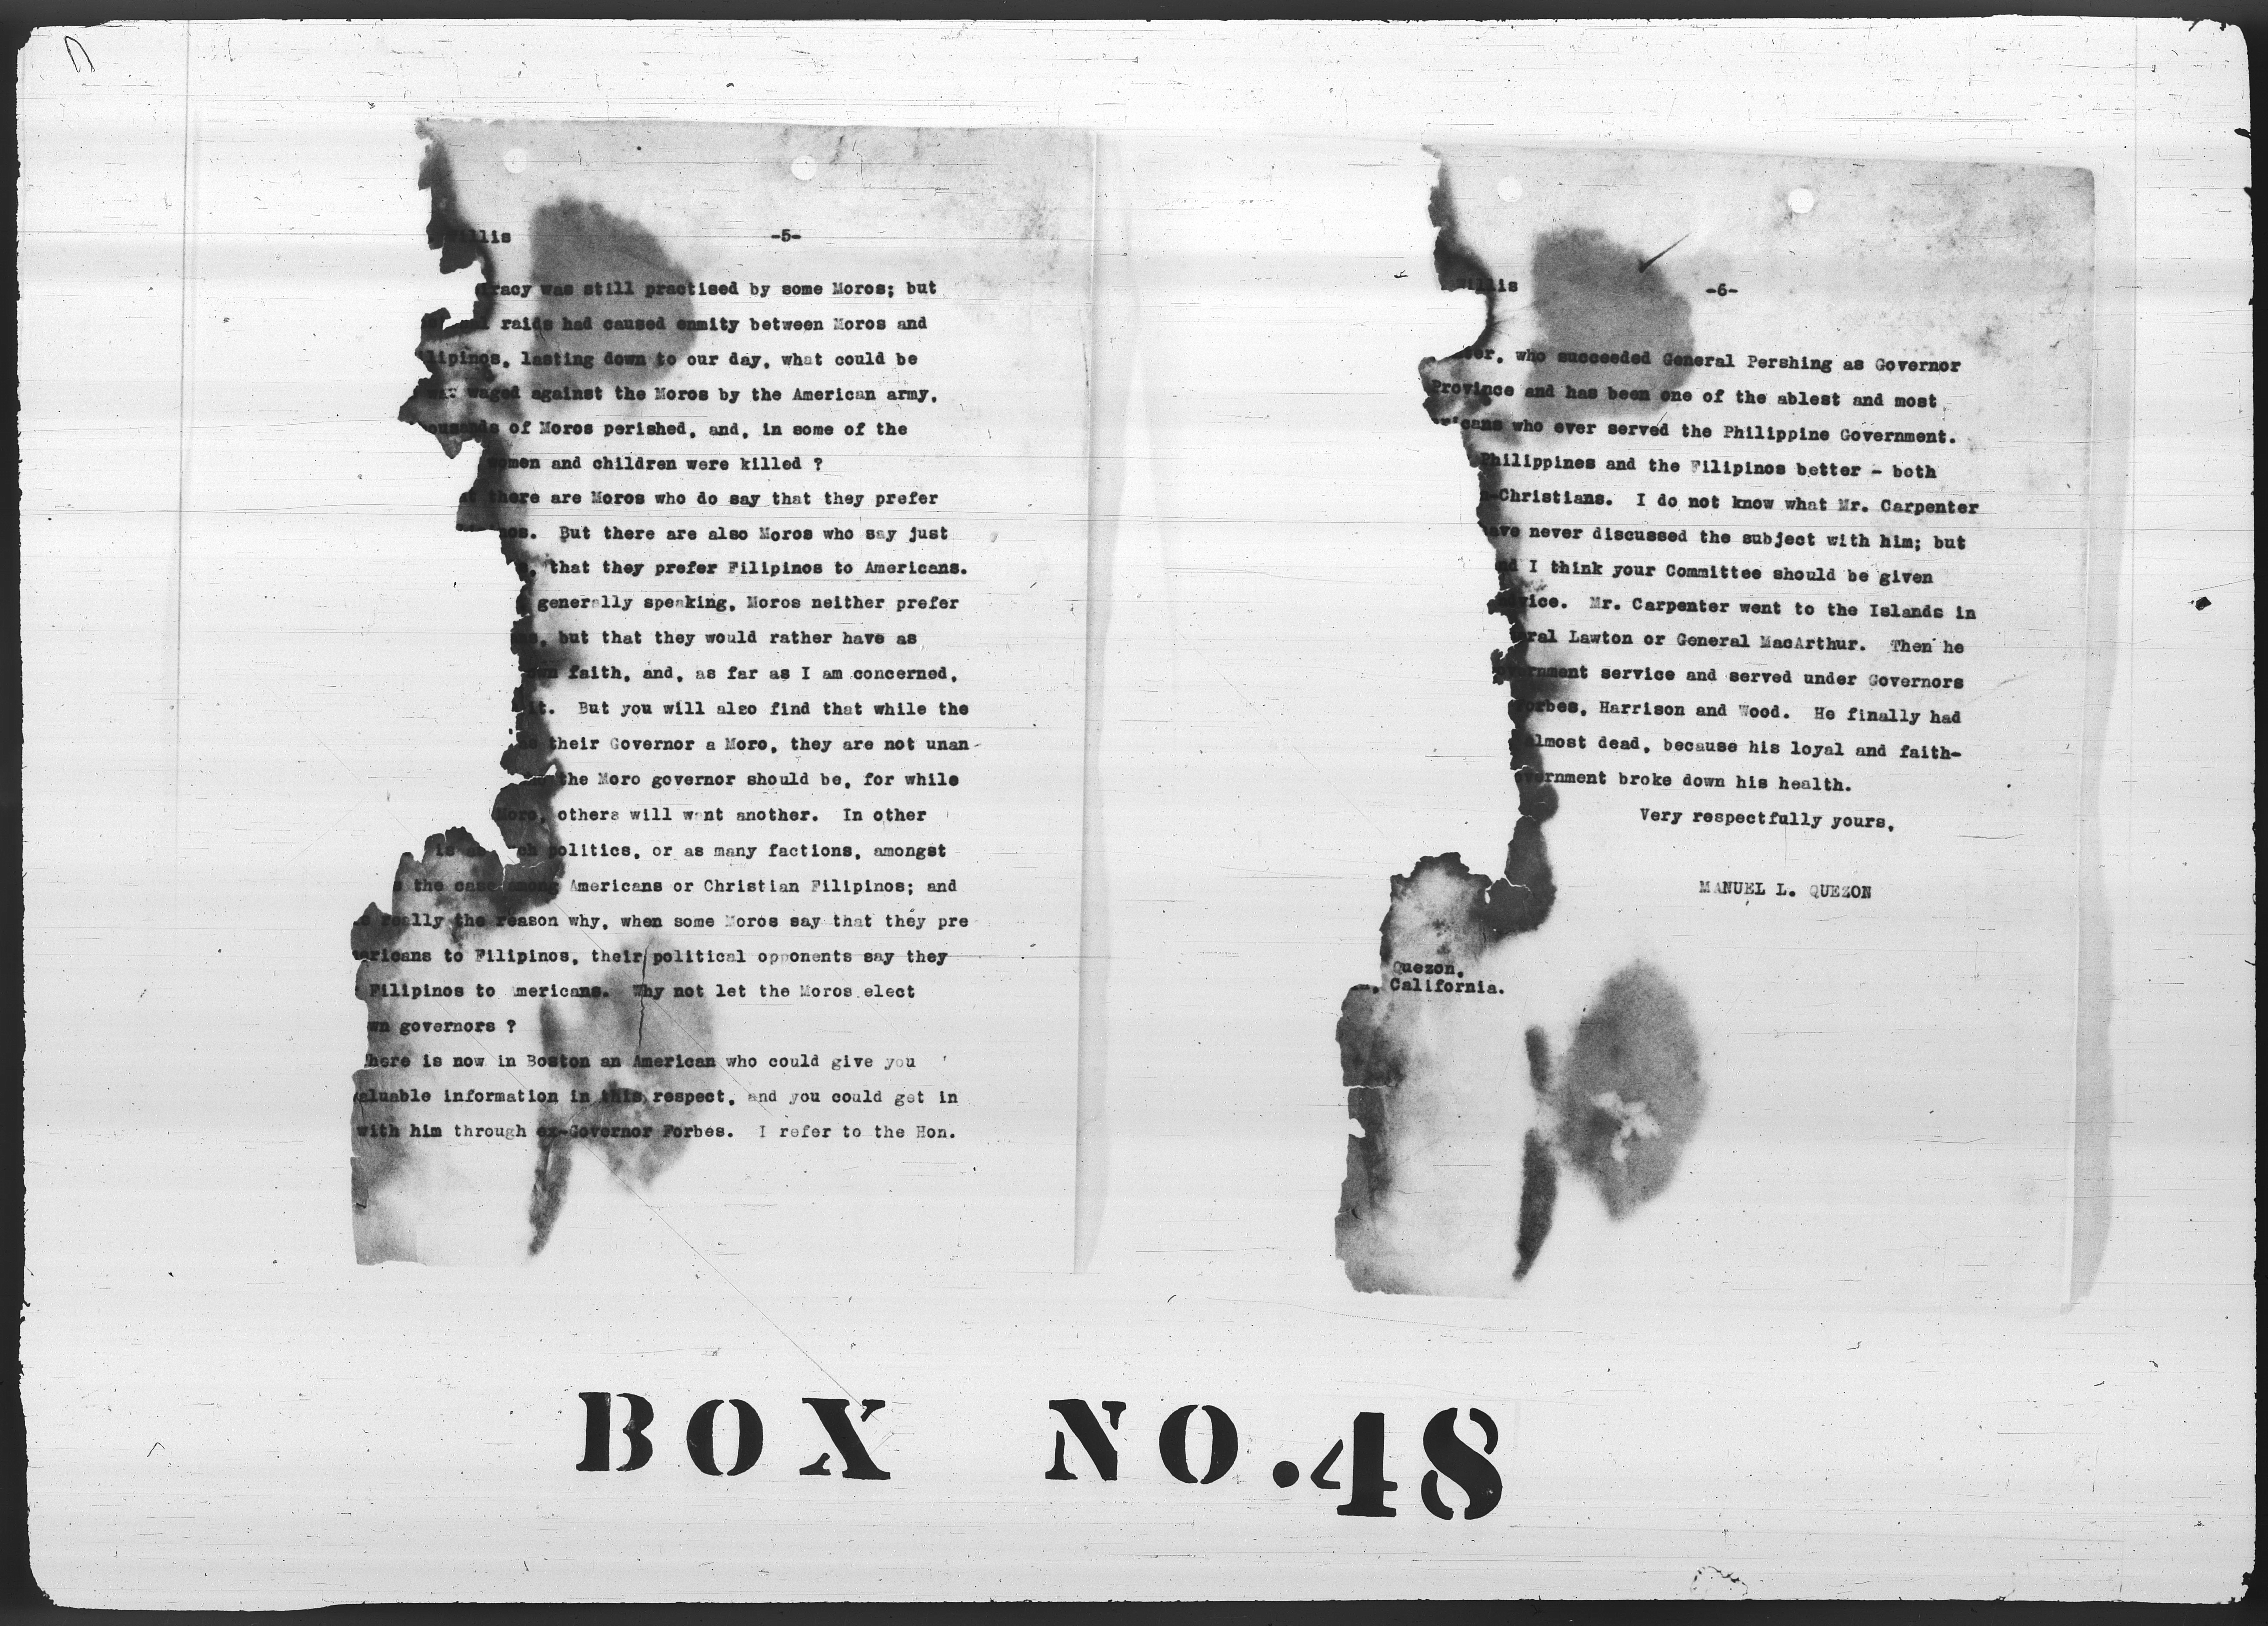 Willis -5-
was still practised by some Moros; but
raids had caused enmity between Moros and
lipinos, lasting down to our day, what could be
war waged against the Moros by the American army,
ousands of Moros perished, and, in some of the
women and children were killed ?
there are Moros who do say that they prefer
nos. But there are also Moros who say just
, that they prefer Filipinos to Americans.
generally speaking, Moros neither prefer
, but that they would rather have as
faith, and, as far as I am concerned,
it. But you will also find that while the
their Governor a Moro, they are not unan-
the Moro governor should be, for while
Moro, others will want another. In other
is as ch politics, or as many factions, amongst
the case among Americans or Christian Filipinos; and
really the reason why, when some Moros say that they pre
ericans to Filipinos, their political opponents say they
Filipinos to Americans. Why not let the Moros elect
wn governors ?
There is now in Boston an American who could give you
aluable information in this respect, and you could get in
with him through ex-Governor Forbes. I refer to the Hon.
Willis -6-
ter, who succeeded General Pershing as Governor
Province and has been one of the ablest and most
ricans who ever served the Philippine Government.
Philippines and the Filipinos better - both
-Christians. I do not know what Mr. Carpenter
ave never discussed the subject with him; but
nd I think your Committee should be given
vice. Mr. Carpenter went to the Islands in
eral Lawton or General MacArthur. Then he
overnment service and served under Governors
Forbes, Harrison and Wood. He finally had
almost dead, because his loyal and faith-
vernment broke down his health.
Very respectfully yours,
MANUEL L. QUEZON
Quezon,
, California.
BOX NO.48